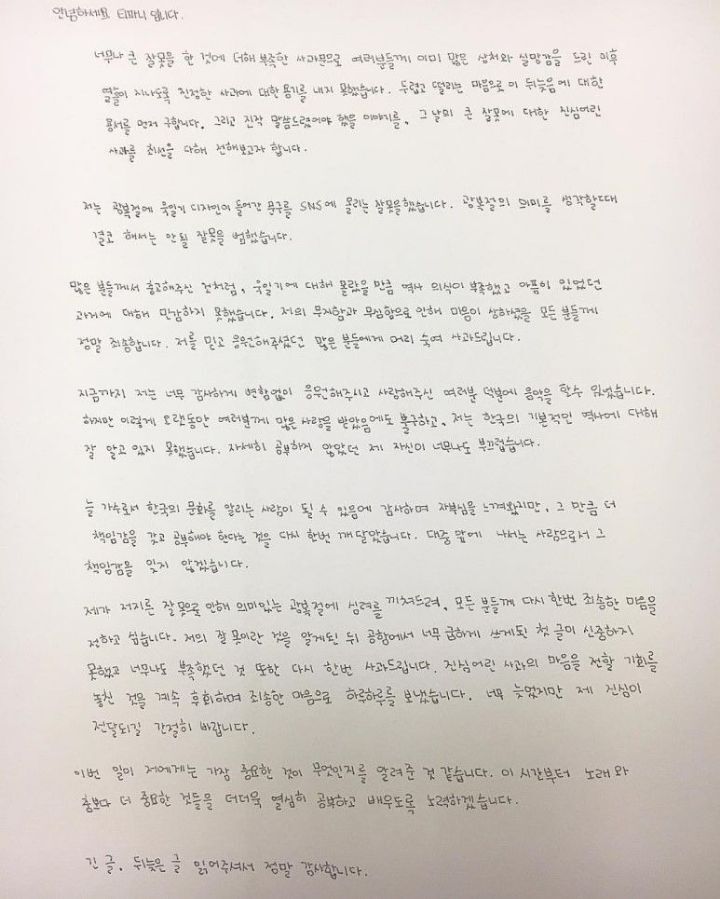 안녕하세요 티파니 입니다.
너무나 큰 잘못을 한 것에 더해 부족한 사과문으로 여러분들께 이미 많은 상처와 실망감을 드린 이후
열흘이 지나도록 진정한 사과에 대한 용기를 내지 못했습니다. 두렵고 떨리는 마음으로 이 뒤늦음에 대한
용서를 먼저 구합니다. 그리고 진작 말씀드렸어야 했을 이야기를, 그 날의 큰 잘못에 대한 진심어린
사과를 최선을 다해 전해보고자 합니다.
저는 광복절에 욱일기 디자인이 들어간 문구를 SNS에 올리는 잘못을했습니다. 광복절의 의미를 생각할때
결코 해서는 안될 잘못을 범했습니다.
많은 분들께서 충고해주신 것처럼, 욱일기에 대해 몰랐을 만큼 역사 의식이 부족했고 아픔이 있었던
과거에 대해 민감하지 못했습니다. 저의 무지함과 무심함으로 인해 마음이 상하셨을 모든 분들께
정말 죄송합니다. 저를 믿고 응원해주셨던 많은 분들에게 머리 숙여 사과드립니다.
지금까지 저는 너무 감사하게 변함없이 응원해주시고 사랑해주신 여러분 덕분에 음악을 할수 있었습니다.
하지만 이렇게 오랫동안 여러분께 많은 사랑을 받았음에도 불구하고, 저는 한국의 기본적인 역사에 대해
잘 알고 있지 못했습니다. 자세히 공부하지 않았던 제 자신이 너무나도 부끄럽습니다.
늘 가수로서 한국의 문화를 알리는 사람이 될 수 있음에 감사하며 자부심을 느껴왔지만, 그 만큼 더
책임감을 갖고 공부해야 한다는 것을 다시 한번 깨달았습니다. 대중 앞에 나서는 사람으로서 그
책임감을 잊지 않겠습니다.
제가 저지른 잘못으로 인해 의미있는 광복절에 심려를 끼쳐드려, 모든 분들께 다시 한번 죄송한 마음을
전하고 싶습니다. 저의 잘 못이란 것을 알게된 뒤 공항에서 너무 급하게 쓰게된 첫 글이 신중하지
못했고 너무나도 부족했던 것 또한 다시 한번 사과드립니다. 진심어린 사과의 마음을 전할 기회를
놓친 것을 계속 후회하며 죄송한 마음으로 하루하루를 보냈습니다. 너무 늦었지만 제 진심이
전달되길 간절히 바랍니다.
이번 일이 저에게는 가장 중요한 것이 무엇인지를 알려준 것 같습니다. 이 시간부터 노래와
춤보다 더 중요한 것들을 더더욱 열심히 공부하고 배우도록 노력하겠습니다.
긴 글, 뒤늦은 글 읽어주셔서 정말 감사합니다.